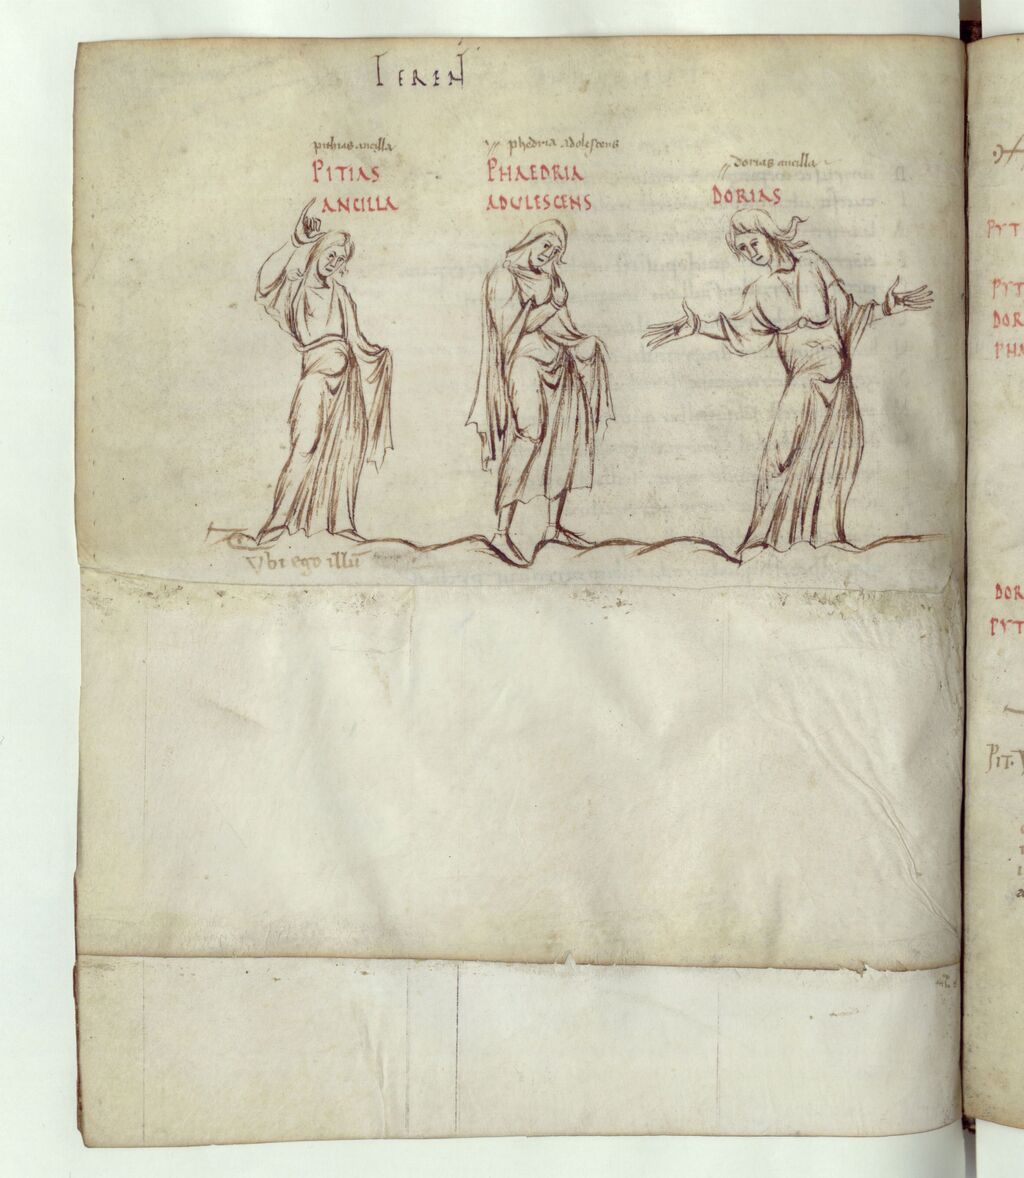 TEREN
pithias ancilla
PITIAS
ANCILLA
phedria adolescens
PHAEDRIA
ADULESCENS
dorias ancilla
DORIAS
Vbi ego illū
PYT
PYT
DOR
PHA
DOR
PYT
PIT. V